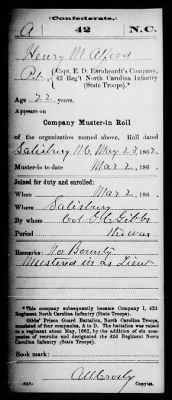 (Confederate.)
A 42 N.C.
Henry M Alford
Pvt., Capt. E. D. Earnheardt's Company,
42 Reg't North Carolina Infantry
(State Troops).*
Age 22 years.
Appears on
Company Muster-in Roll
of the organization named above. Roll dated
Salisbury N.C, May 22, 1862.
Muster-in to date Mar 2, 186 .
Joined for duty and enrolled:
When Mar 2, 186 .
Where Salisbury
By whom Col G C Gibbs
Period the war
Remarks: No Bounty
Mustered in as Lieut
*This company subsequently became Company I, 42d
Regiment North Carolina Infantry (State Troops).
Gibbs' Prison Guard Battalion, North Carolina Troops,
consisted of four companies, A to D. The battalion was raised
to a regiment about May, 1862, by the addition of six com-
panies of recruits and designated the 42d Regiment North
Carolina Infantry (State Troops).
Book mark:
Copyist.